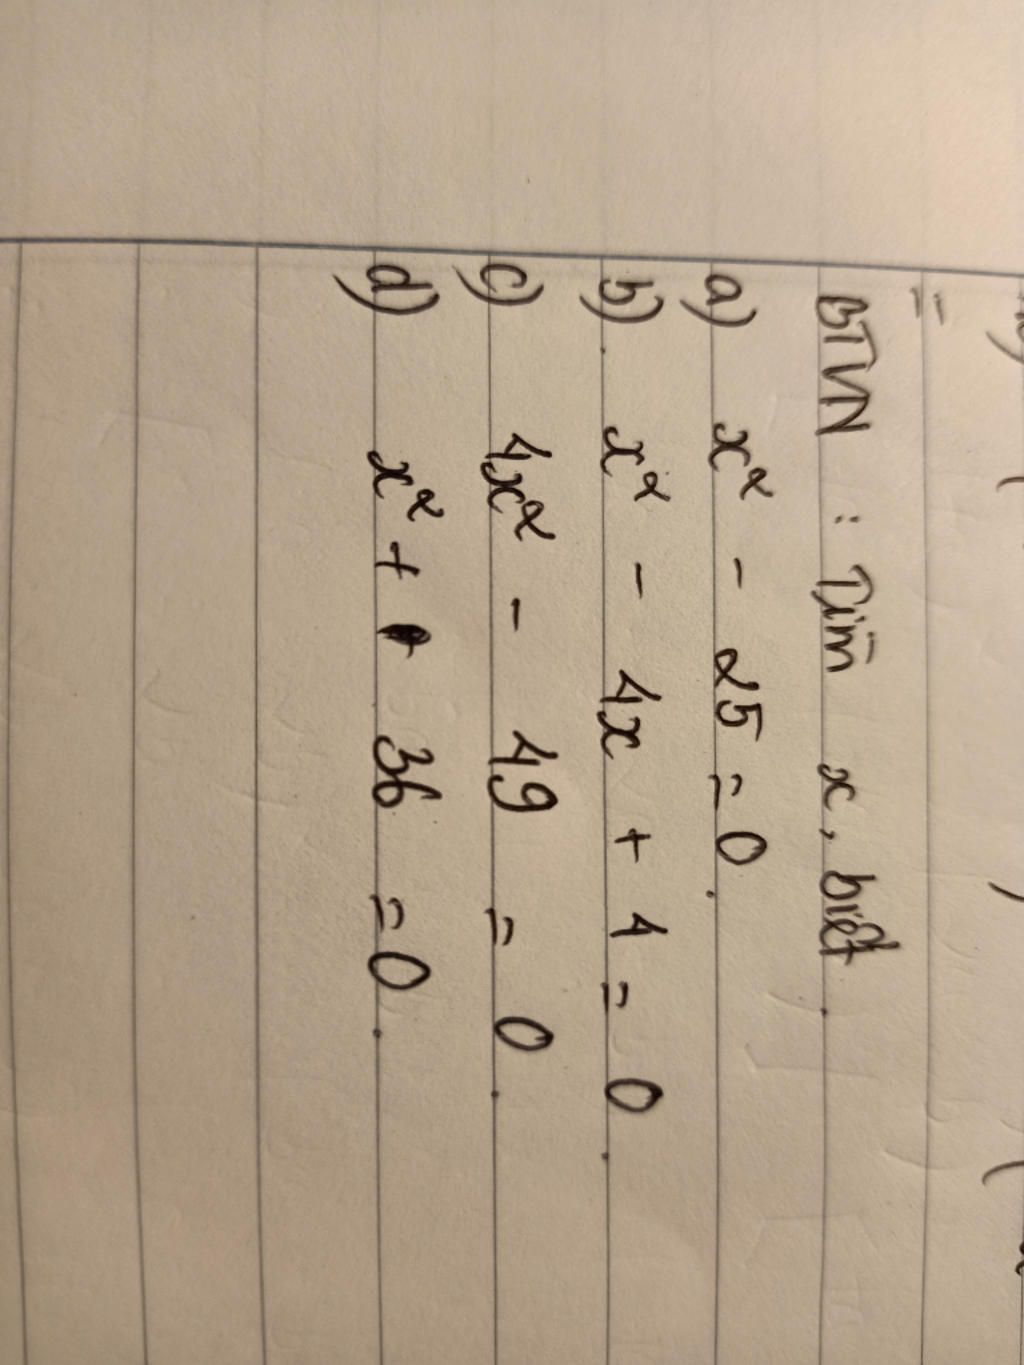 BTVN : Tìm x, biết
a) x² - 25 = 0.
b) x² - 4x + 4 = 0.
c) 4x² - 49 = 0.
d) x² + 36 = 0.